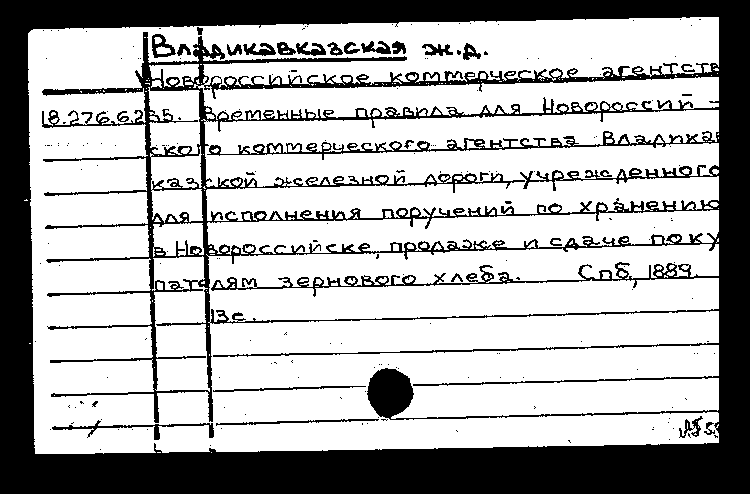 Владикавказская ж.д.
Новороссийское коммерческое агентств
18.276.6.255. Временные правила для Новороссий-
ского коммерческого агентства Владикав
казской железной дороги, учрежденного
для исполнения поручений по хранению
в Новороссийске, продаже и сдаче поку
пателям зернового хлеба. Спб, 1889.
13с.